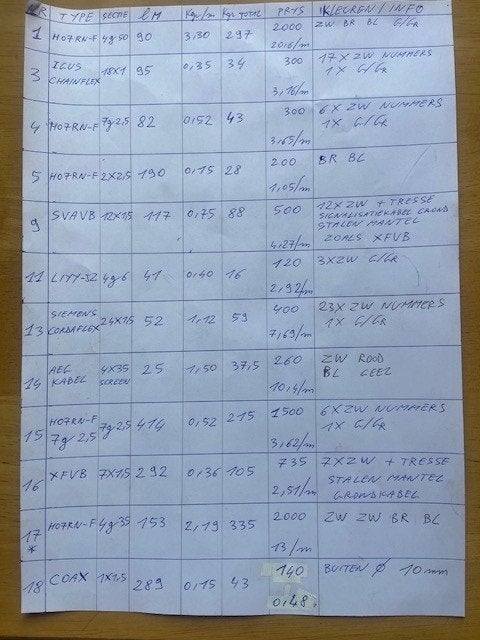 NR TYPE SECTIE LM Kgr/m Kgr TOTAL PRYS KLEUREN / INFO
1 HO7RN-F 4g50 90 3,30 297 2000 ZW BR BL G/Gr
20,16/m
3 IGUS CHAINFLEX 18X1 95 0,35 34 300 17X ZW NUMMERS
3,16/m 1X G/Gr
4 HO7RN-F 7g2,5 82 0,52 43 300 6X ZW NUMMERS
3,65/m 1X G/Gr
5 HO7RN-F 2X2,5 190 0,15 28 200 BR BL
1,05/m
9 SVAVB 12X1,5 117 0,75 88 500 12X ZW + TRESSE
SIGNALISATIEKABEL GROND
STALEN MANTEL
4,27/m ZOALS XFVB
11 LIYY-JZ 4g6 41 0,40 16 120 3XZW G/Gr
2,92/m
13 SIEMENS CORDAFLEX 24X1,5 52 1,12 59 400 23X ZW NUMMERS
7,69/m 1X G/Gr
14 AEG KABEL 4X35 SCREEN 25 1,50 37,5 260 ZW ROOD
10,4/m BL GEEL
15 HO7RN-F 7g2,5 7g2,5 414 0,52 215 1500 6X ZW NUMMERS
3,62/m 1X G/Gr
16 XFVB 7X1,5 292 0,36 105 735 7XZW + TRESSE
STALEN MANTEL
2,51/m GRONDKABEL
17 * HO7RN-F 4g35 153 2,19 335 2000 ZW ZW BR BL
13/m
18 COAX 1X1,5 289 0,15 43 140 BUITEN Ø 10mm
0,48